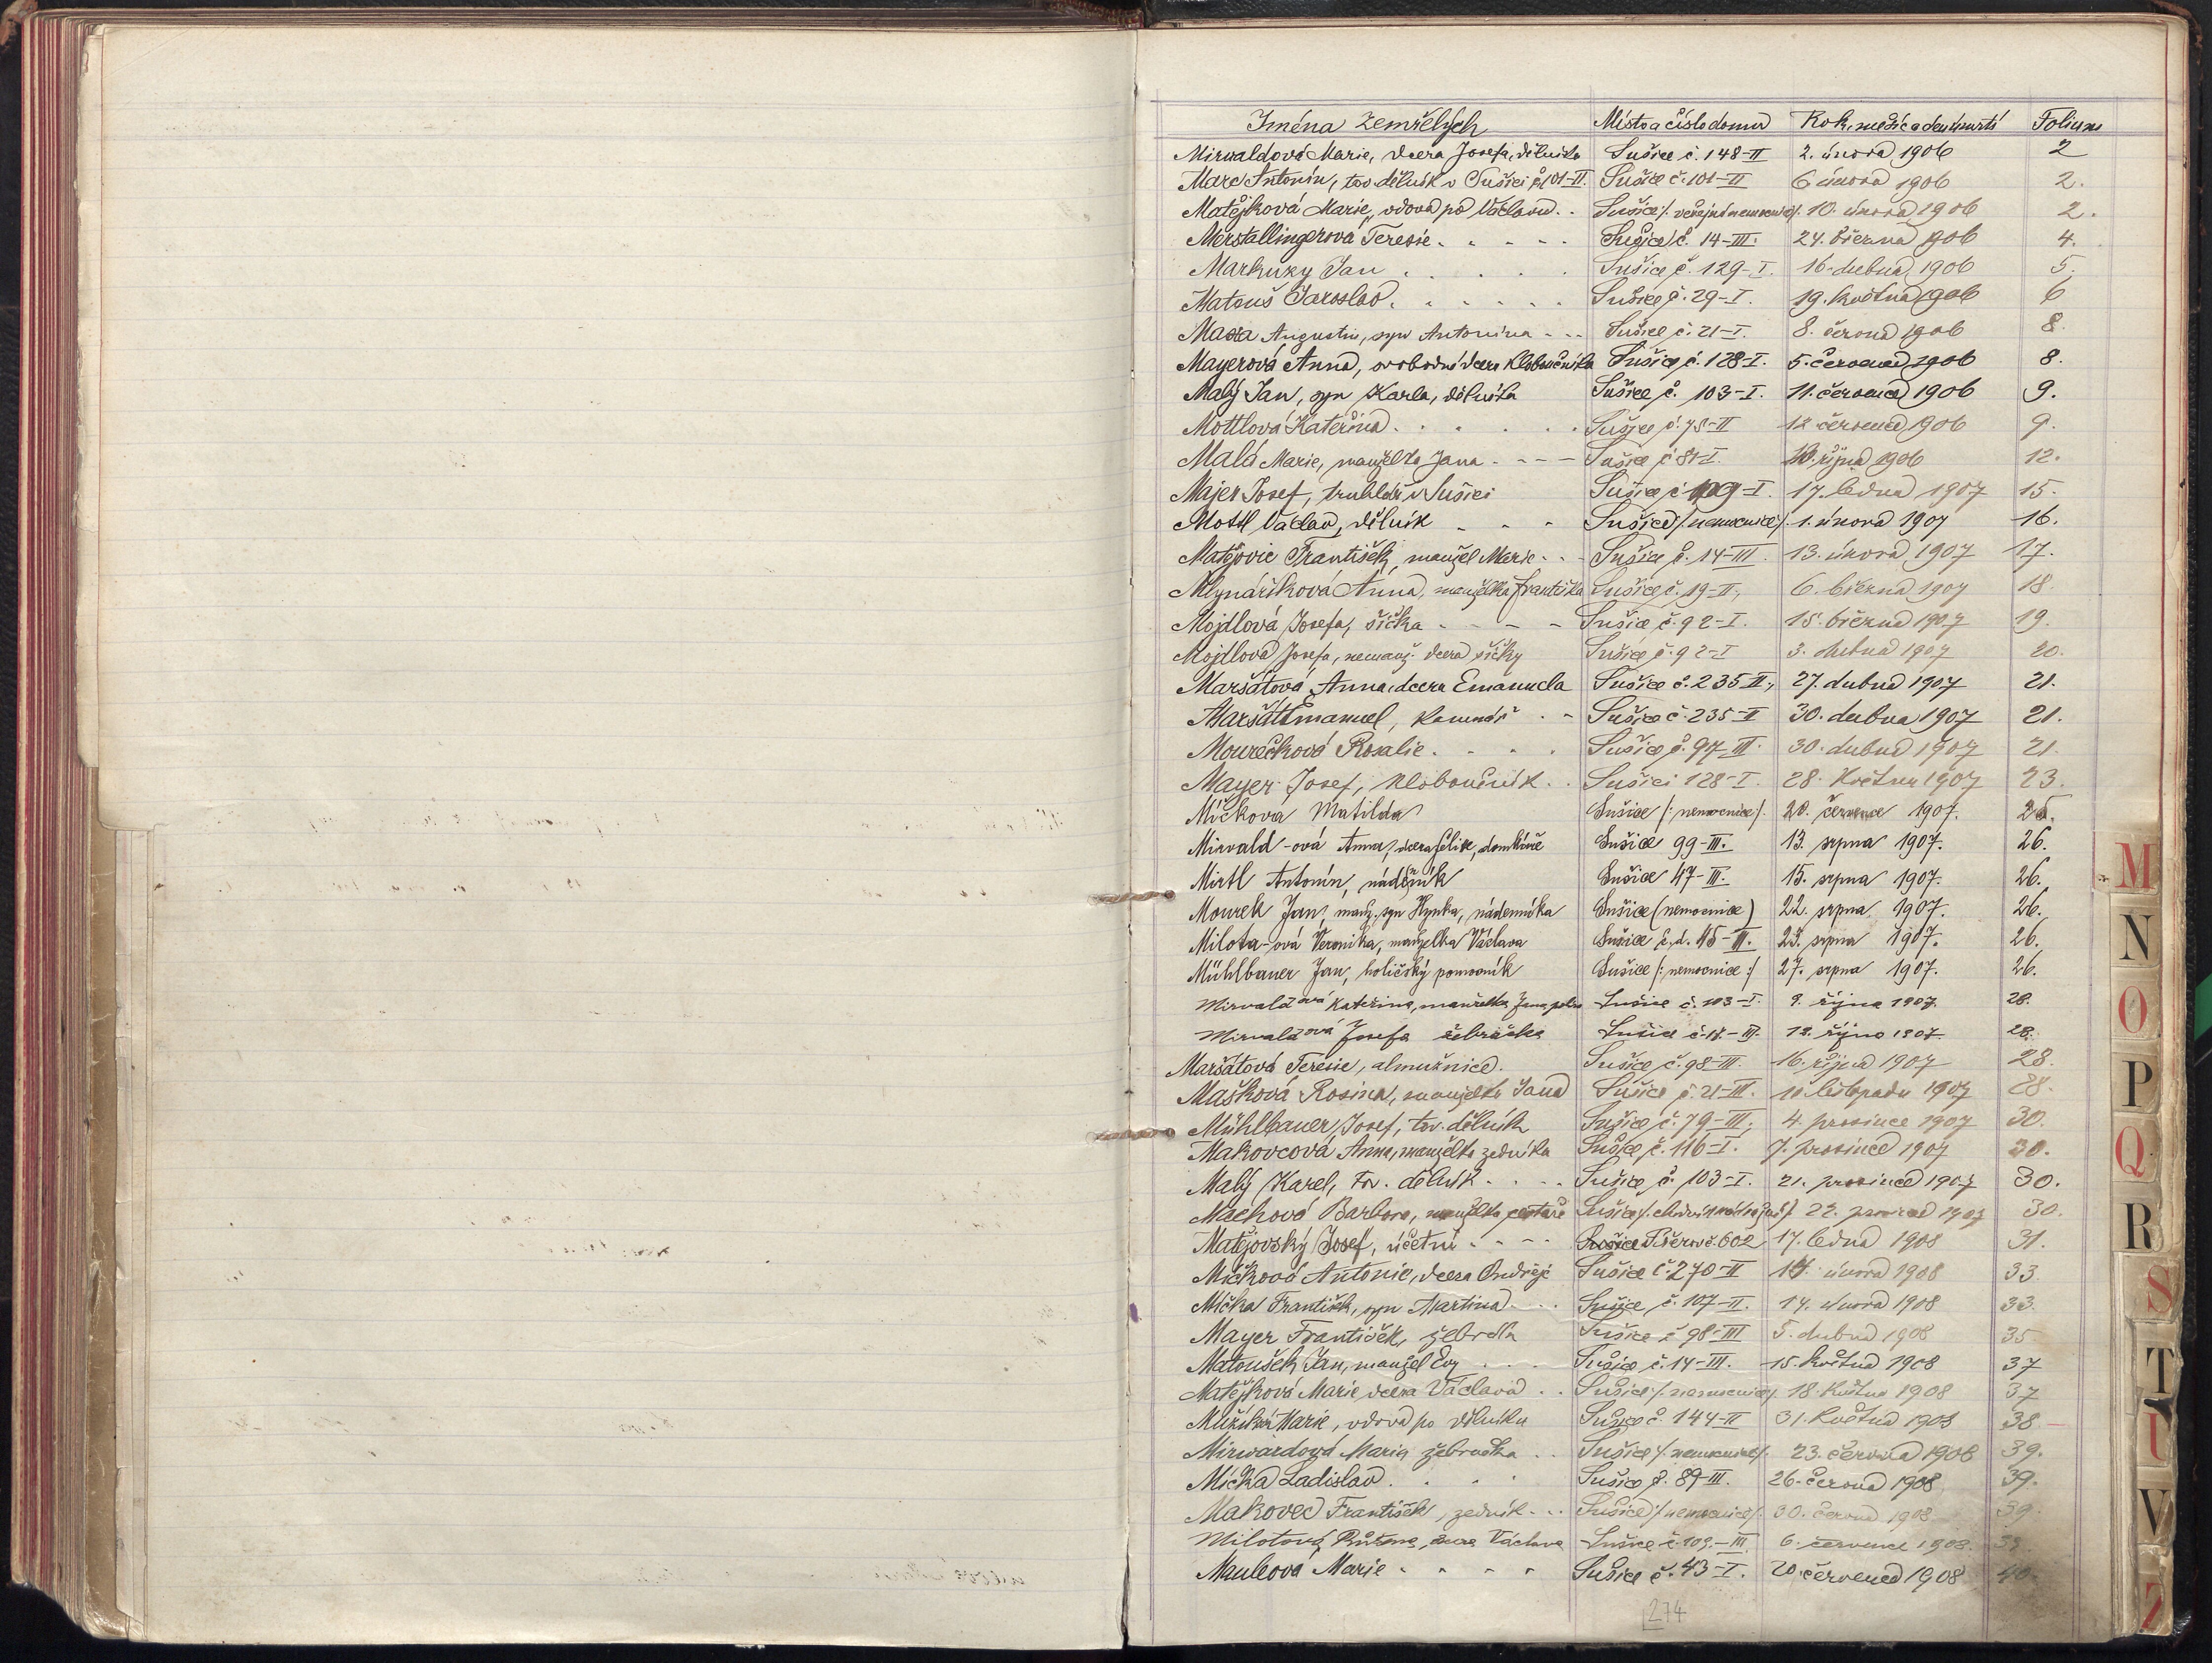 Jména zemřelých Místo a číslo domu Rok, měsíc a den úmrtí Folium
Mirwaldová Marie, dcera Josefa, dělníka Sušice č. 148-II 2. února 1906 2
Marc Antonín, tov. dělník v Sušici č. 101-II. Sušice č. 101-II 6 února 1906 2.
Matějková Marie, vdova po Václavu. . Sušice /. veřejná nemocnice/. 10. února 1906 2.
Merstallingerova Teresie. . . . . Sušice č. 14-III. 24. března 1906 4.
Markuzy Jan . . . . . Sušice č. 129-I. 16. dubna 1906 5.
Matouš Jaroslav. . . . . . Sušice č. 29-I. 19. května 1906 6
Maxa Augustin, syn Antonína - - - Sušice č. 21-I. 8. června 1906 8.
Mayerová Anna, svobodná dcera kloboučníka Sušice č. 128-I. 5. července 1906 8.
Malý Jan, syn Karla, dělníka Sušice č. 103-I. 11. července 1906 9.
Mottlová Kateřina. . . . . . Sušice č. 75-II 12 července 1906 9.
Malá Marie, manželka Jana - - - Sušice č 81-I. října 1906 12.
Majer Josef, truhlář v Sušici Sušice č 109-I. 17. ledna 1907 15.
Mottl Václav, dělník - - - Sušice /. nemocnice/. 1. února 1907 16.
Matějovic František, manžel Marie - - Sušice č. 14-III. 13. února 1907 17.
Mlynáříková Anna, manželka Františka Sušice č. 19-II. 6. března 1907 18.
Mojdlová Josefa, šička - - - - Sušice č. 92-I. 15. března 1907 19.
Mojdlová Josefa, nemanž. dcera šičky Sušice č. 92-I 3. dubna 1907 20.
Maršátová Anna, dcera Emanuela Sušice č. 235 II., 27. dubna 1907 21.
Maršát Emanuel, . - Sušice č. 235-II 30. dubna 1907 21.
Mourečková Rosalie. . . . . Sušice č. 97-III. 30. dubna 1907 21.
Mayer Josef, kloboučník . . Sušici 128-I. 28. května 1907 23.
Míčkova Matilda Sušice /: nemocnice/. 20. července 1907. 25.
Mirvald-ová Anna, dcera Felixe, domkáře Sušice 99-III. 13. srpna 1907. 26.
Mirtl Antonín, nádeník Sušice 47-III. 15. srpna 1907. 26.
Mourek Jan, manž. syn Hynka, nádeníka Sušice (nemocnice) 22. srpna 1907. 26.
Milota-ová Veronika, manželka Václava Sušice č. d. 45-II. 23. srpna 1907. 26.
Mühlbauer Jan, holičský pomocník Sušice /: nemocnice :/ 27. srpna 1907. 26.
Mirvaldová Kateřina, manželka Jana Sušice č. 103-I. 9. října 1907. 28.
Mirvaldová Josefa žebračka Sušice III. 12. října 1907 28.
Maršátová Teresie, almužnice. Sušice č. 98-III. 16. října 1907 28
Mašková Rosina, manželka Jana Sušice č. 21-III. 10. listopadu 1907 28.
Mühlbauer Josef, tov. dělník Sušice č. 79-III. 4. prosince 1907 30.
Makovcová Anna, manželka zedníka Sušice č. 116-I. 7. prosince 1907 30.
Malý Karel, tov. dělník. - - . Sušice č. 103-I. 21. prosince 1907 30.
Machová Barbora, manželka cestáře Sušice 22. prosince 1907 30.
Matějovský Josef, účetní - - - - č. 602 17. ledna 1908 31.
Míčková Antonie, dcera Ondřeje Sušice č. 270-II února 1908 33.
Míčka František, syn Martina - - . Sušice, č. 107-II. 14. února 1908 33.
Mayer František, žebrák Sušice č 98-III 5. dubna 1908 35
Matoušek Jan, manžel Evy . . . Sušice č. 14-III. 15. května 1908 37
Matějková Marie dcera Václava . . Sušice /. nemocnice/. 18. května 1908 37
Mužíková Marie, vdova po dělníku Sušice č. 144-II 31. května 1908 38
Mirwardová Maria žebračka . . Sušice /. nemocnice/. 23. června 1908 39.
Míčka Ladislav. . . . Sušice č. 89-III. 26. června 1908 39.
Makovec František, zedník - - . Sušice /. nemocnice/. 30. června 1908. 39.
Milotová Růžena, dcera Václava Sušice č. 109.-III. 6. července 1908. 39.
Mauleová Marie . . . . Sušice č. 43-I. 20. července 1908 40.
274
M
N
O
P
Q
R
S
T
U
V
Z